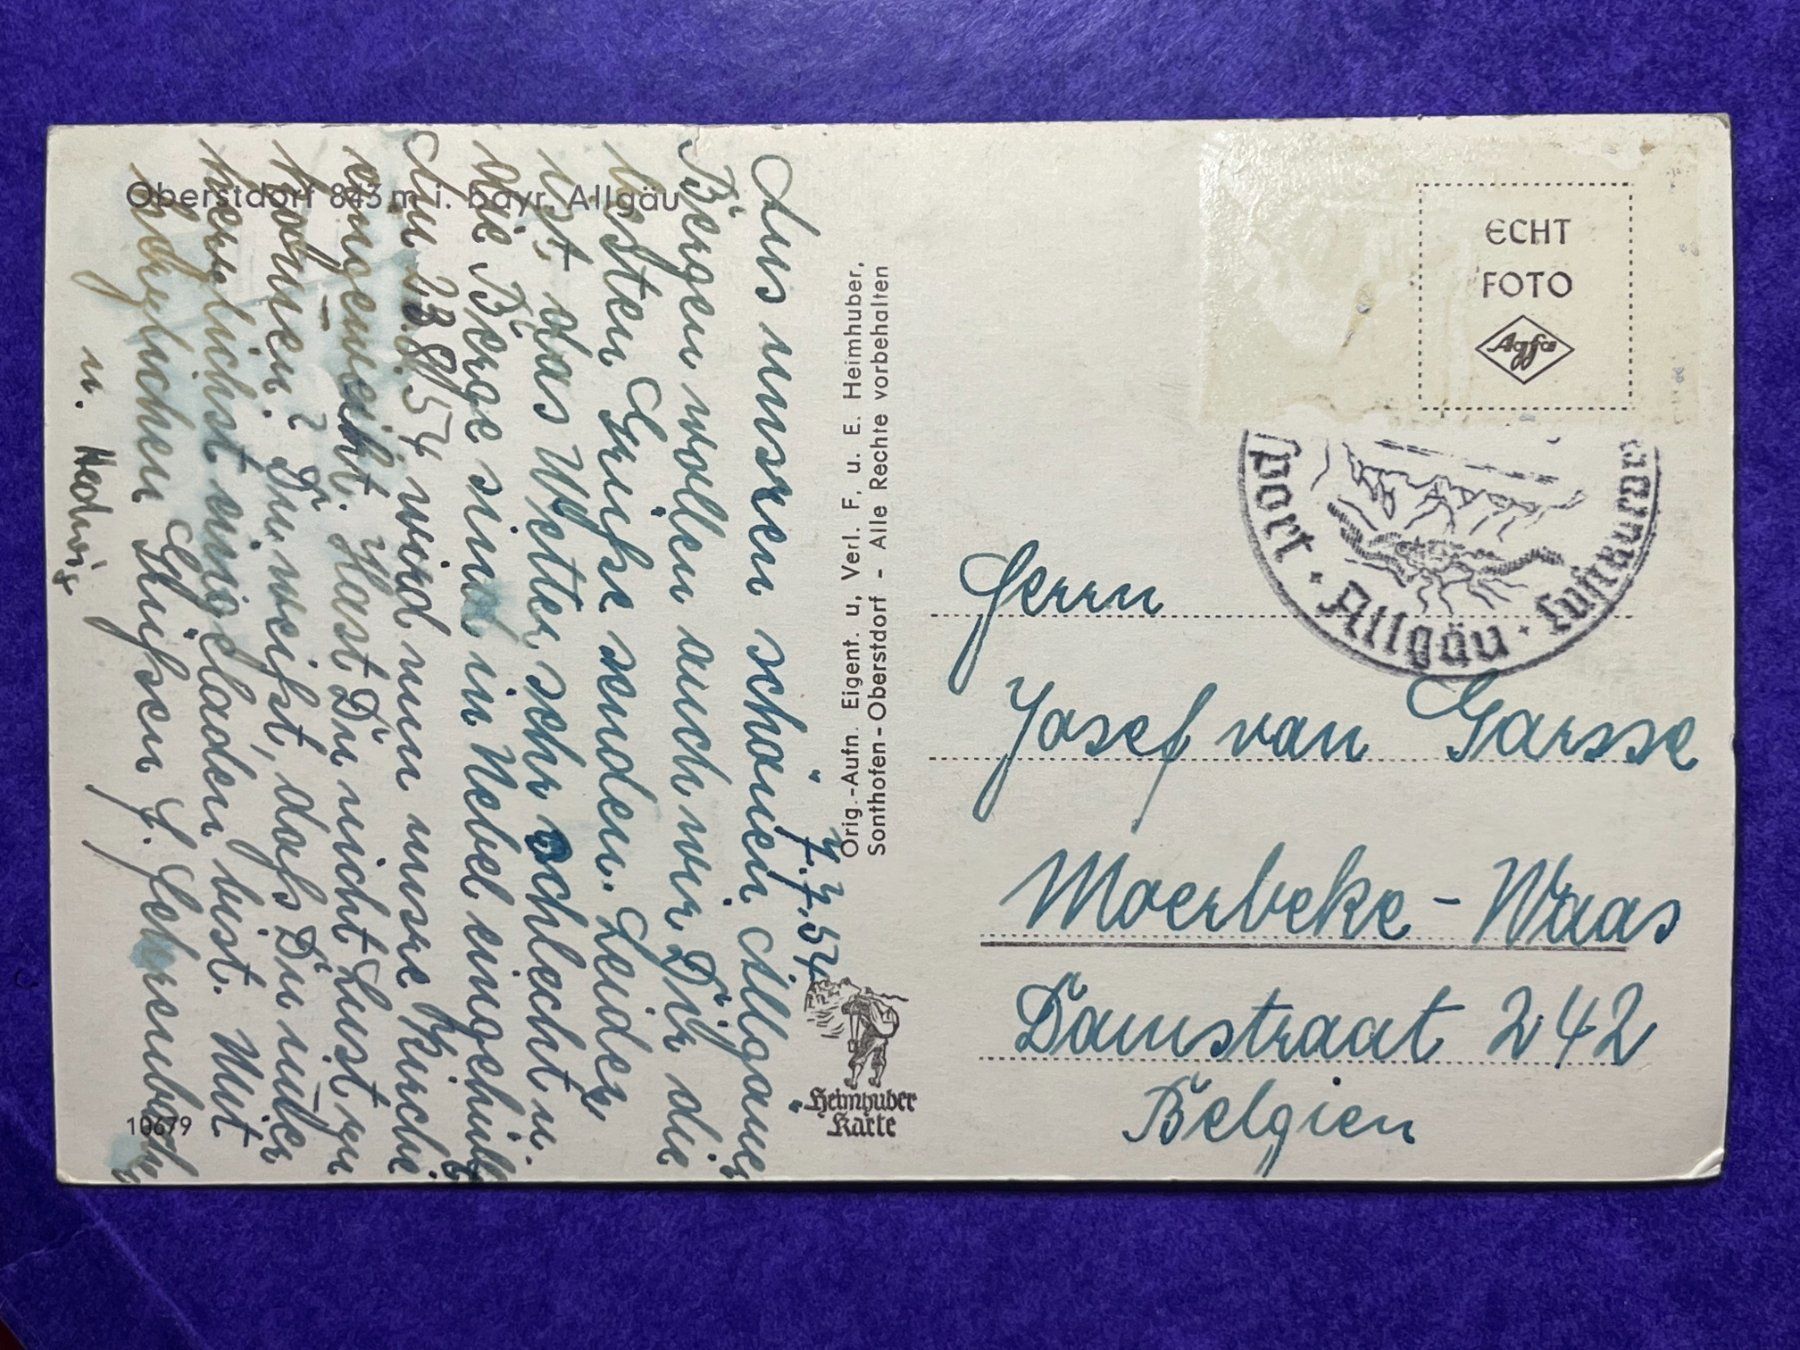 Oberstdorf 843 m i. bayr. Allgäu
7.7.54
Aus unsren schönen Allgäuer
Bergen wollen auch wir Dir die
besten Grüße senden. Leider
ist das Wetter sehr schlecht u.
die Berge sind in Nebel eingehüllt
Am 23.8.54 wird nun unsre Kirche
eingeweiht. Hast Du nicht Lust zu
kommen? Du weißt, daß Du immer
herzlichst eingeladen bist. Mit
herzlichen Grüßen J.
u. Hedwig
10679
Orig.-Aufn. Eigent. u, Verl. F, u. E. Heimhuber,
Sonthofen-Oberstdorf - Alle Rechte vorbehalten
Heimhuber
Karte
ECHT
FOTO
Agfa
port · Allgäu · Luftkuror
Herrn
Josef van Garsse
Moerbeke - Waas
Damstraat 242
Belgien